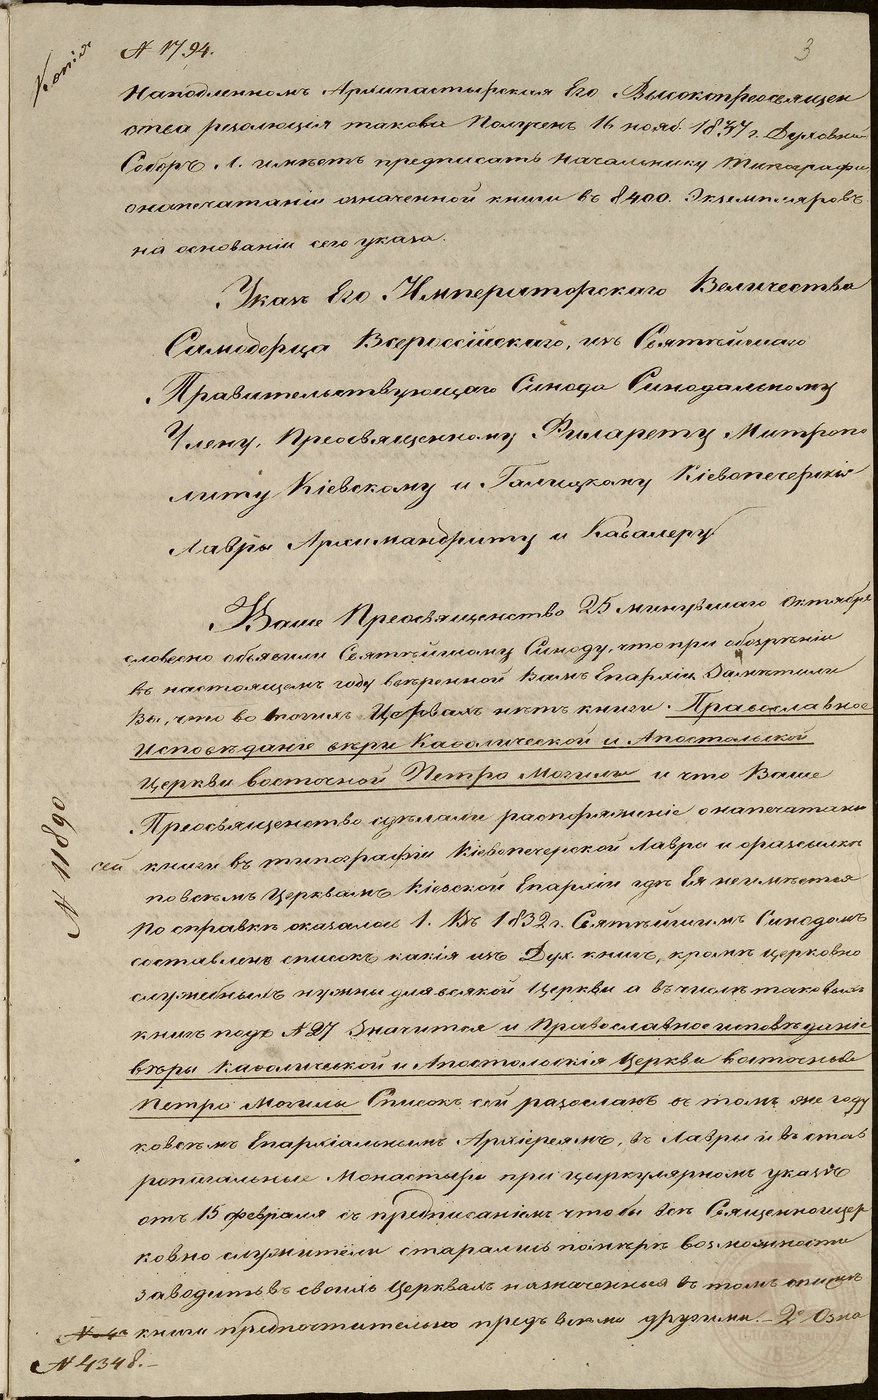 Копія
N 1794.
3
Наподленномъ Архипастырская Его Высокопреосвящен
ства резолюція такова Получен 16 нояб. 1837 г. Духовный
Соборъ Л. имѣетъ предписать Начальнику Типографіи
онапечатаніи означенной книги въ 8400. Экземпляровъ
на основаніи сего указа.
Указъ Его Императорскаго Величества
Самодержца Всероссійскаго, изъ Святѣйшаго
Правительствующаго Синода Синодальному
Члену, Преосвященному Филарету Митропо
литу Кіевскому и Галицкому Кіевопечерскія
Лавры Архимандриту и Кавалеру
Ваше Преосвященство 25 минувшаго Октября
словесно объявили Святѣйшему Синоду, что при обозрѣніи
въ настоящемъ году ввѣренной Вамъ Епархіи Замѣтили
Вы, что во многихъ Церквахъ нѣтъ книги. Православное
Исповѣданіе вѣры Каѳолической и Апостольской
Церкви Восточной Петра Могилы и что Ваше
Преосвященство сдѣлали распоряженіе онапечатани
сей книги въ типографіи Кіевопечерской Лавры и оразсылкѣ
повсѣмъ Церквамъ Кіевской Епархіи гдѣ Ея неимѣется
N 11890
По справкѣ оказалось 1. Въ 1832 г. Святѣйшимъ Синодомъ
составленъ списокъ какія изъ Дух. книгъ, кромѣ церковно
служебныхъ нужны для всякой Церкви и въ числѣ таковыхъ
книгъ подъ N 27 Значится и Православное исповѣданіе
вѣры Каѳолической и Апостольскія Церкви Восточныя
Петра Могилы Списокъ сей разосланъ въ томъ же году
ковсѣмъ Епархіальнымъ Архіереямъ, въ Лавры и въ став
ропигальные Монастыри при циркулярномъ указѣ
отъ 15 февраля съ предписаніемъ чтобы всѣ Священноицер
ковно служители старались помѣрѣ возможности
заводить въ своихъ Церквахъ назначенныя въ томъ спискѣ
книги предпочтительно предъ всѣми другими. – 2е Озна
N 4348. –